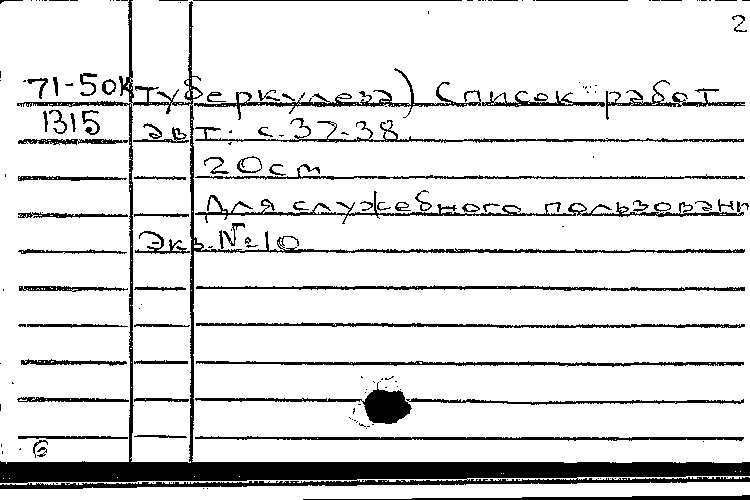 2
71-50к туберкулеза) Список работ
1315 авт: с. 37-38.
20 см
Для служебного пользован
Экз. № 10
6